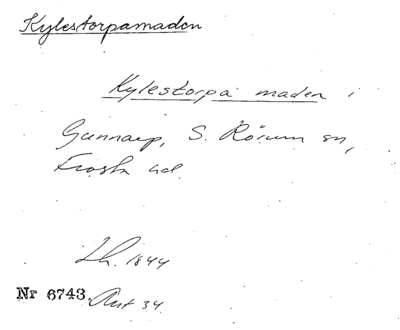 Kylestorpamaden
Kylestorpa maden i
Gunnarp, S. Rörum sn,
Frosta hd.
Lh. 1844
Nr 6743. Akt 34.